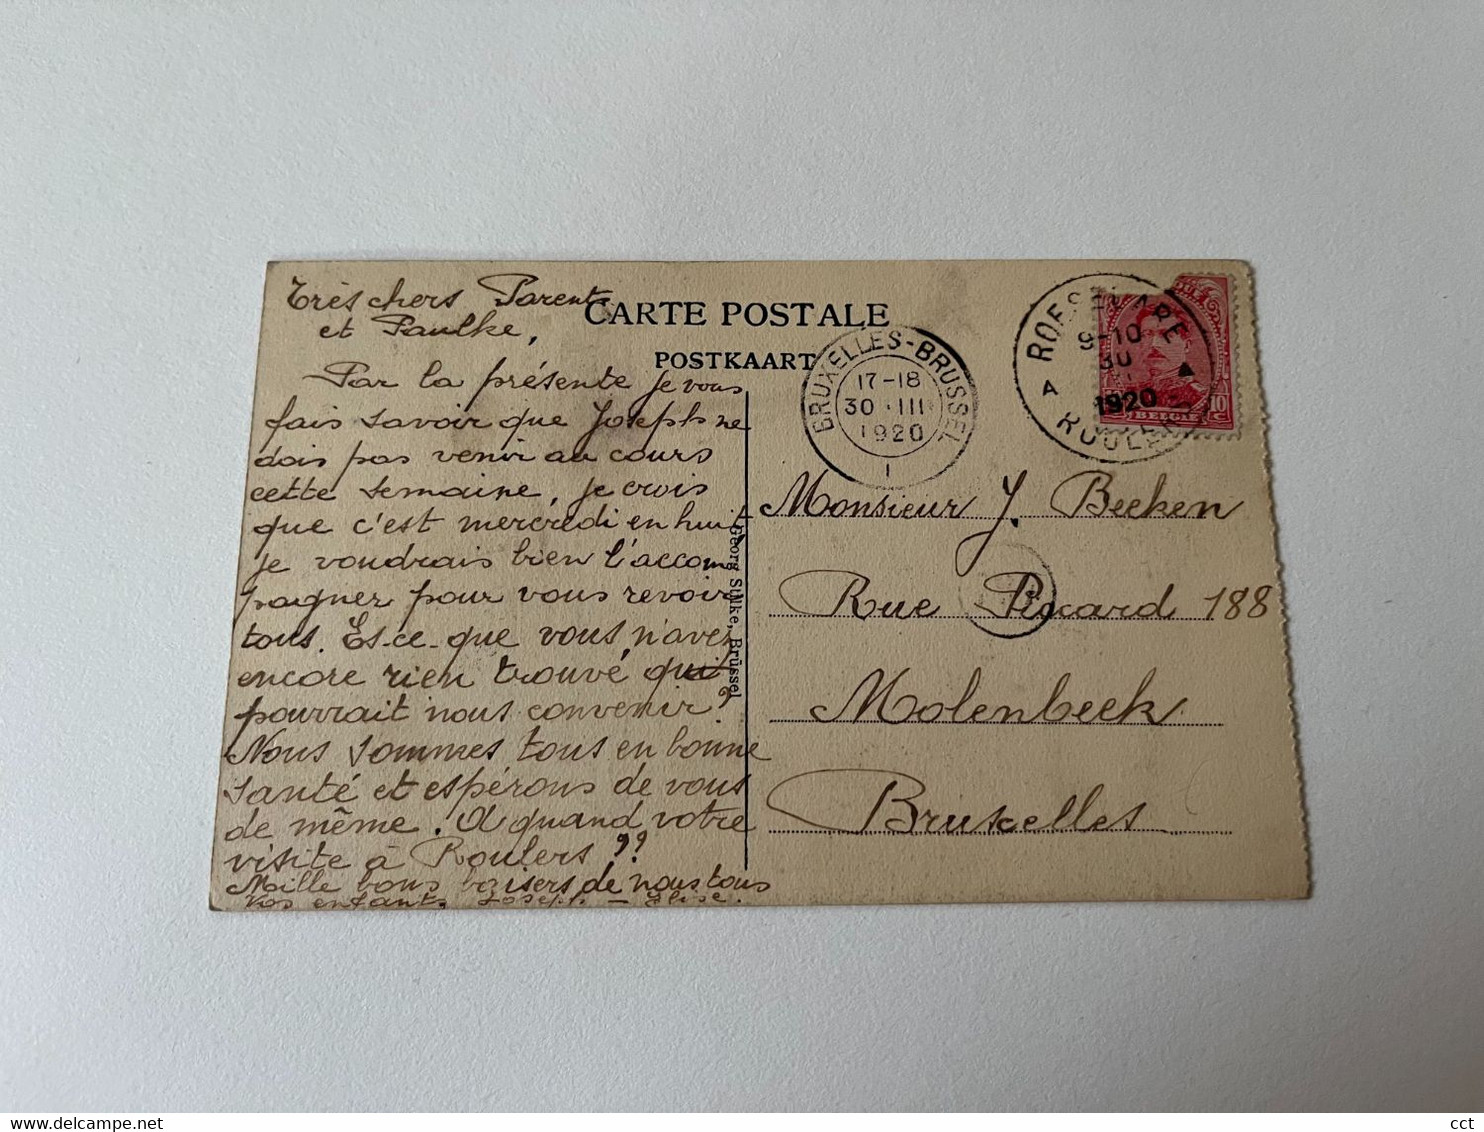 Très chers Parents
et Paulke,
Par la présente je vous
fais savoir que Joseph ne
dois pas venir au cours
cette semaine, je crois
que c'est mercredi en huit,
je voudrais bien l'accom
pagner pour vous revoir
tous. Es-ce-que vous n'avez
encore rien trouvé qui
pourrait nous convenir?
Nous sommes tous en bonne
santé et espérons de vous
de même. A quand votre
visite à Roulers??
Mille bons baisers de nous tous
Vos enfants Joseph - Elise.
CARTE POSTALE
POSTKAART
Georg Stilke, Brüssel
BRUXELLES-BRUSSEL
17-18
30 III
1920
1
ROESELARE
9-10
30
1920
A ROULERS
10
C
BELGIE
Monsieur J. Beeken
Rue Piccard 188
Molenbeek
Bruxelles
delcampe.net
cct